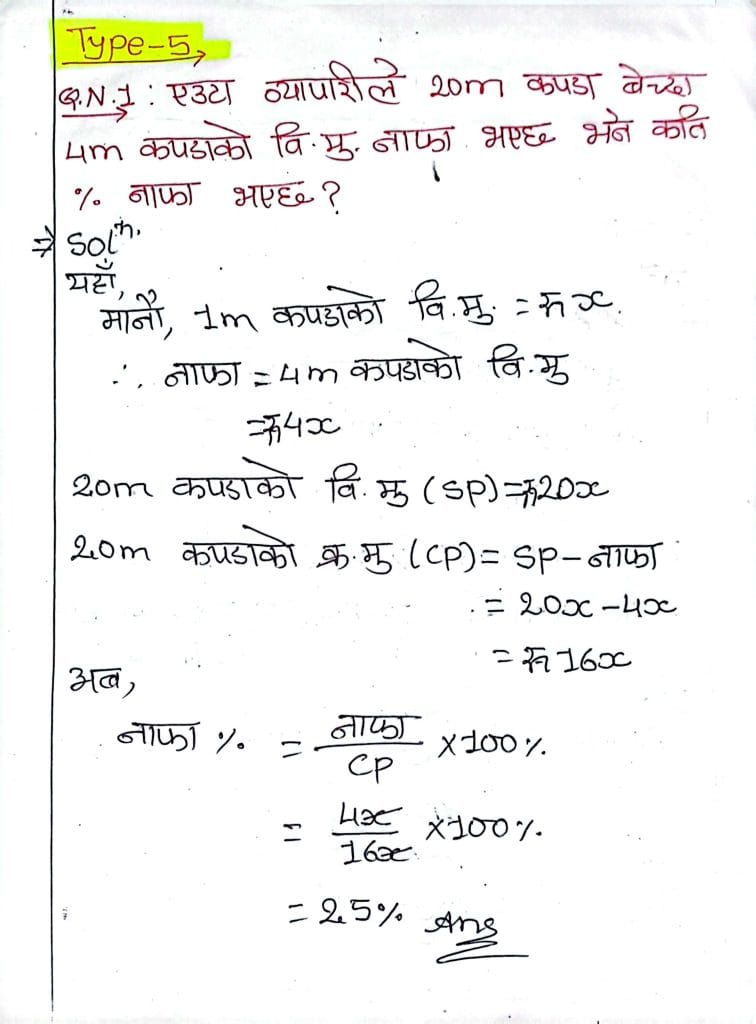 Type-5,
Q.N.1 : एउटा व्यापारीले 20m कपडा बेच्दा
4m कपडाको वि.मु. नाफा भएछ भने कति
% नाफा भएछ ?
⇒ Solⁿ.
यहाँ,
मानौ, 1m कपडाको वि.मु. = रु x.
∴ नाफा = 4m कपडाको वि.मु
= रु 4x
20m कपडाको वि. मु (SP) = रु 20x
20m कपडाको क्र.मु (CP) = SP - नाफा
= 20x - 4x
= रु 16x
अब,
नाफा % = नाफा/CP × 100%
= 4x/16x × 100%
= 25% Ans